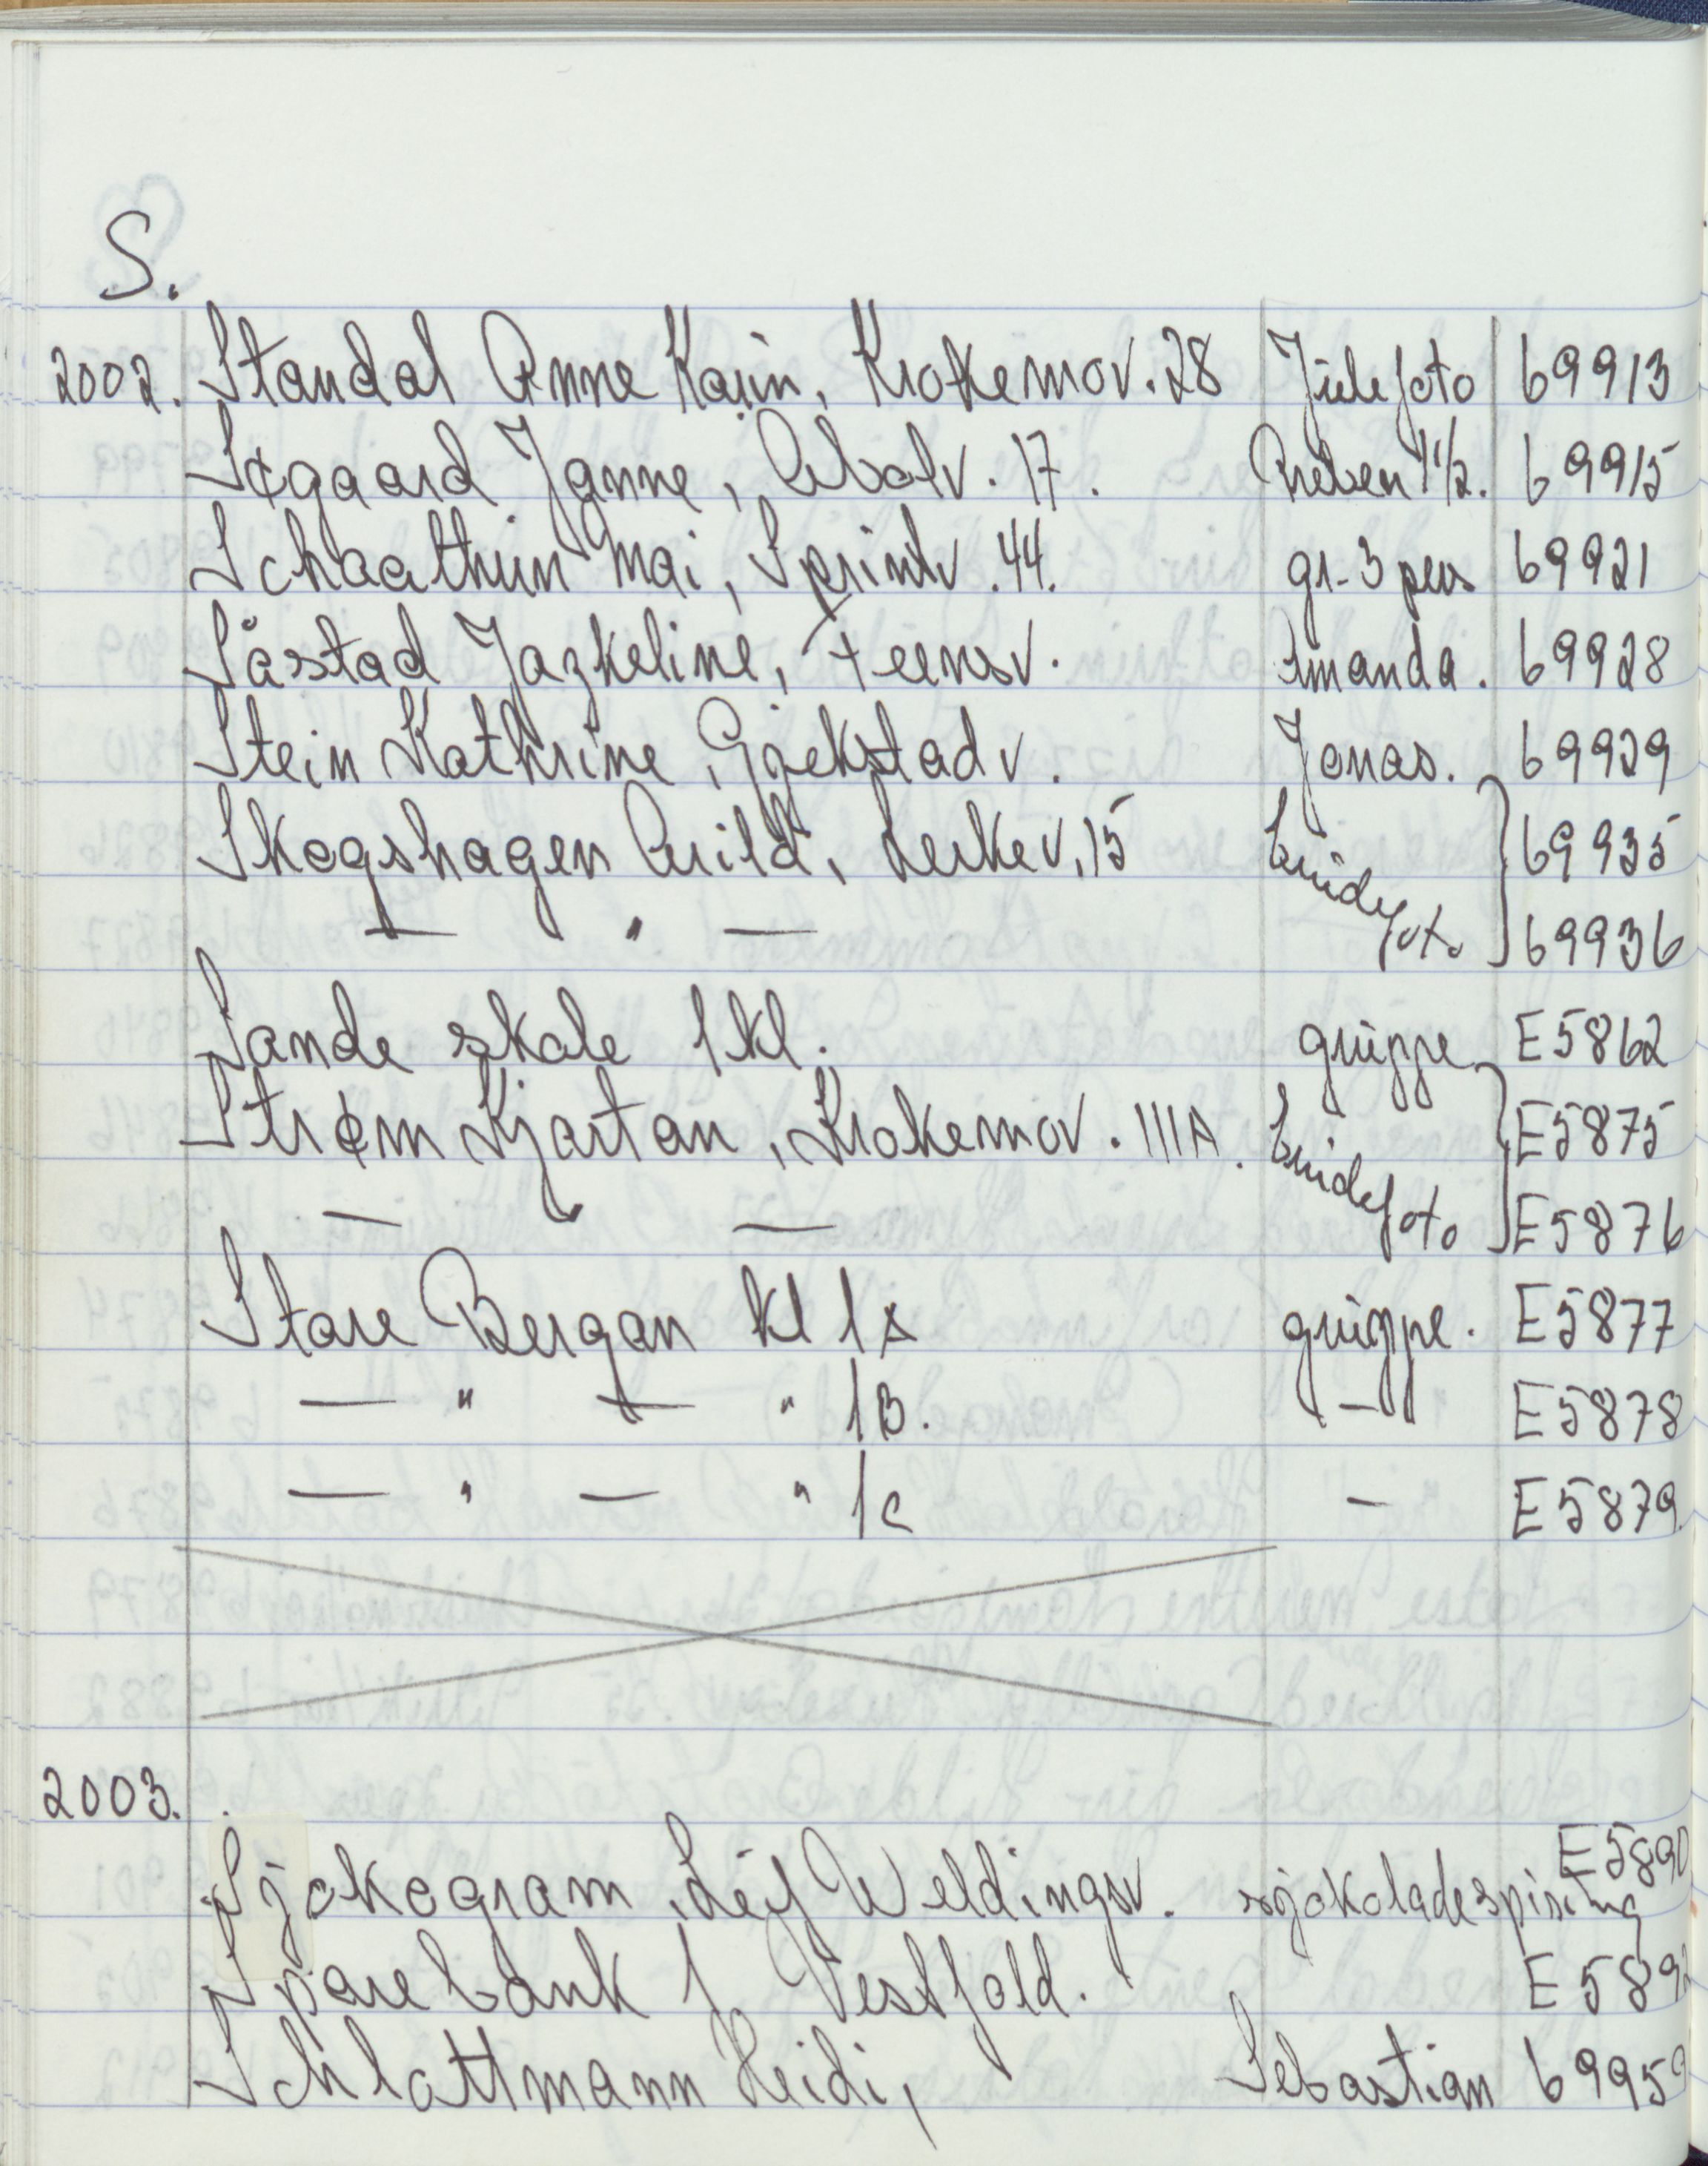 S.
2002. Standal Anne Karin, Krokemov. 28 Julefoto 69913
Søgaard Janne, Cubolv. 17. Preben 1 1/2. 69915
Schaathun Mai, Sprintv. 44. gr. 3 pers 69921
Såstad Jazkeline, Feensv. Amanda. 69928
Stein Kathrine, Gjekstadv. Jonas. 69929
Skogshagen Arild, Lerkev, 15 brudefoto 69935
— " — 69936
Sande skole 1 kl. gruppe E5862
Strøm Kjartan, Krokemov. 111A. brudefoto E5875
— " — E5876
Store Bergan kl 1A gruppe. E5877
— " — " 1B. — E5878
— " — " 1C — E5879.
2003.
Sjokogram, Leif Weldingsv. sjokoladespising E5890
Sparebank 1 Vestfold. E589
Schlottmann Heidi, Sebastian 69959